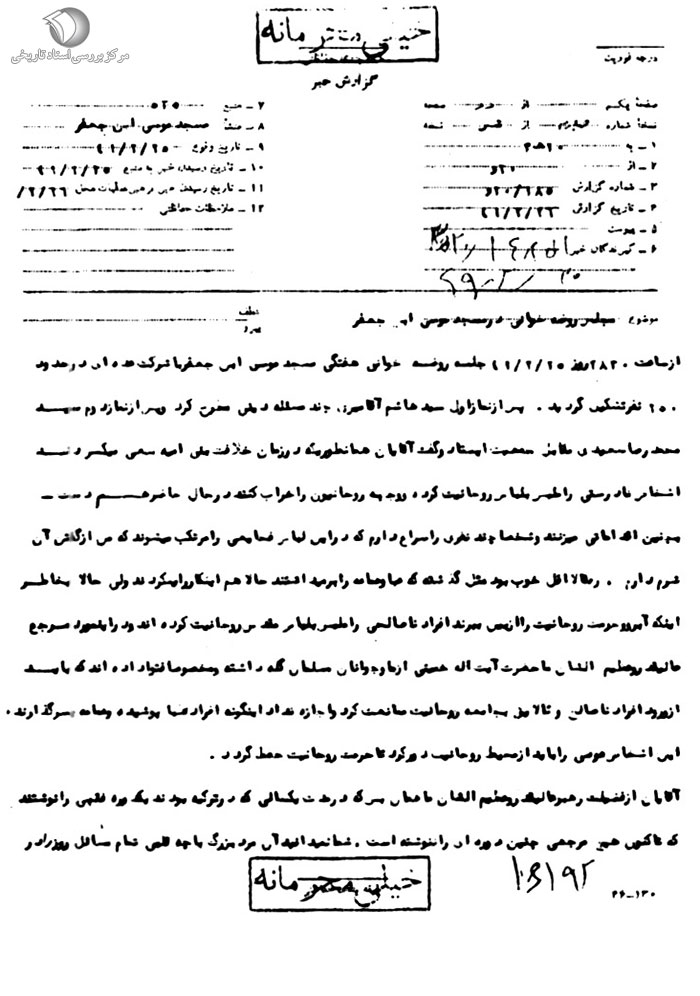 مرکز بررسی اسناد تاریخی
خیلی محرمانه
درجه فوریت
گزارش خبر
صفحه یکم از دو صفحه
نسخه شماره چهارم از شش نسخه
۱ ـ به ۲۰ ه‍ ۳
۲ ـ از ۲۰ و
۳ ـ شماره گزارش ۲۰/۱۸۵ و
۴ ـ تاریخ گزارش ۴۹/۲/۲۶
۵ ـ پیوست
۶ ـ گیرندگان خبر
۷ ـ منبع ۵۲۵
۸ ـ منشأ مسجد موسی ابن جعفر
۹ ـ تاریخ وقوع ۴۹/۲/۲۵
۱۰ ـ تاریخ رسیدن خبر به منبع ۴۹/۲/۲۵
۱۱ ـ تاریخ رسیدن خبر برهبر عملیات محل ۲/۲۶/
۱۲ ـ ملاحظات حفاظتی
موضوع مجلس روضه خوانی در مسجد موسی ابن جعفر
عطف
پیرو
ازساعت ۲۰۳۰ روز ۴۹/۲/۲۵ جلسه روضه خوانی هفتگی مسجد موسی ابن جعفر با شرکت عده ای در حدود
۲۵۰ نفر تشکیل گردید . پس از نماز اول سید هاشم آقا میری چند مسئله دینی مطرح کرد و پس از نماز دوم سید
محمد رضا سعیدی مقابل جمعیت ایستاد و گفت آقایان همانطوریکه در زمان خلافت بنی امیه سعی میکردند
اشخاص نادرستی را ملبس بلباس روحانیت کرده و وجهه روحانیون را خراب کنند در حال حاضر هم دست ـ
بچنین اقداماتی میزنند و شخصا چند نفری را سراغ دارم که در این لباس فجایعی را مرتکب میشوند که من از گفتن آن
شرم دارم . و حالا اقل خوب بود مثل گذشته که عبا و عمامه را برمیداشتند حالا هم اینکار را میکردند ولی حالا بخاطر
اینکه آبرو و حرمت روحانیت را از بین ببرند افراد ناصالحی را ملبس بلباس مقدس روحانیت کرده اند و در اینمورد مرجع
عالیقدر عظیم الشان ما حضرت آیت اله خمینی از ما و جوانان مسلمان گله داشته و مخصوصا فتوا داده اند که باید
از ورود افراد ناصالح و نالایق بجامعه روحانیت ممانعت کرد و اجازه نداد اینگونه افراد عبا پوشیده و عمامه بسر گذارند .
این اشخاص عوضی را باید از محیط روحانیت دور کرد تا حرمت روحانیت حفظ گردد .
آقایان از فضیلت رهبر عالیقدر و عظیم الشان ما همان بس که در مدت یکسالی که در ترکیه بودند یک دوره فقهی را نوشتند
که تاکنون هیچ مرجعی چنین دوره ای را ننوشته است . شما نمیدانید آن مرد بزرگ با چه قلمی تمام مسائل روز را در
خیلی محرمانه
۲۶-۱۳۰